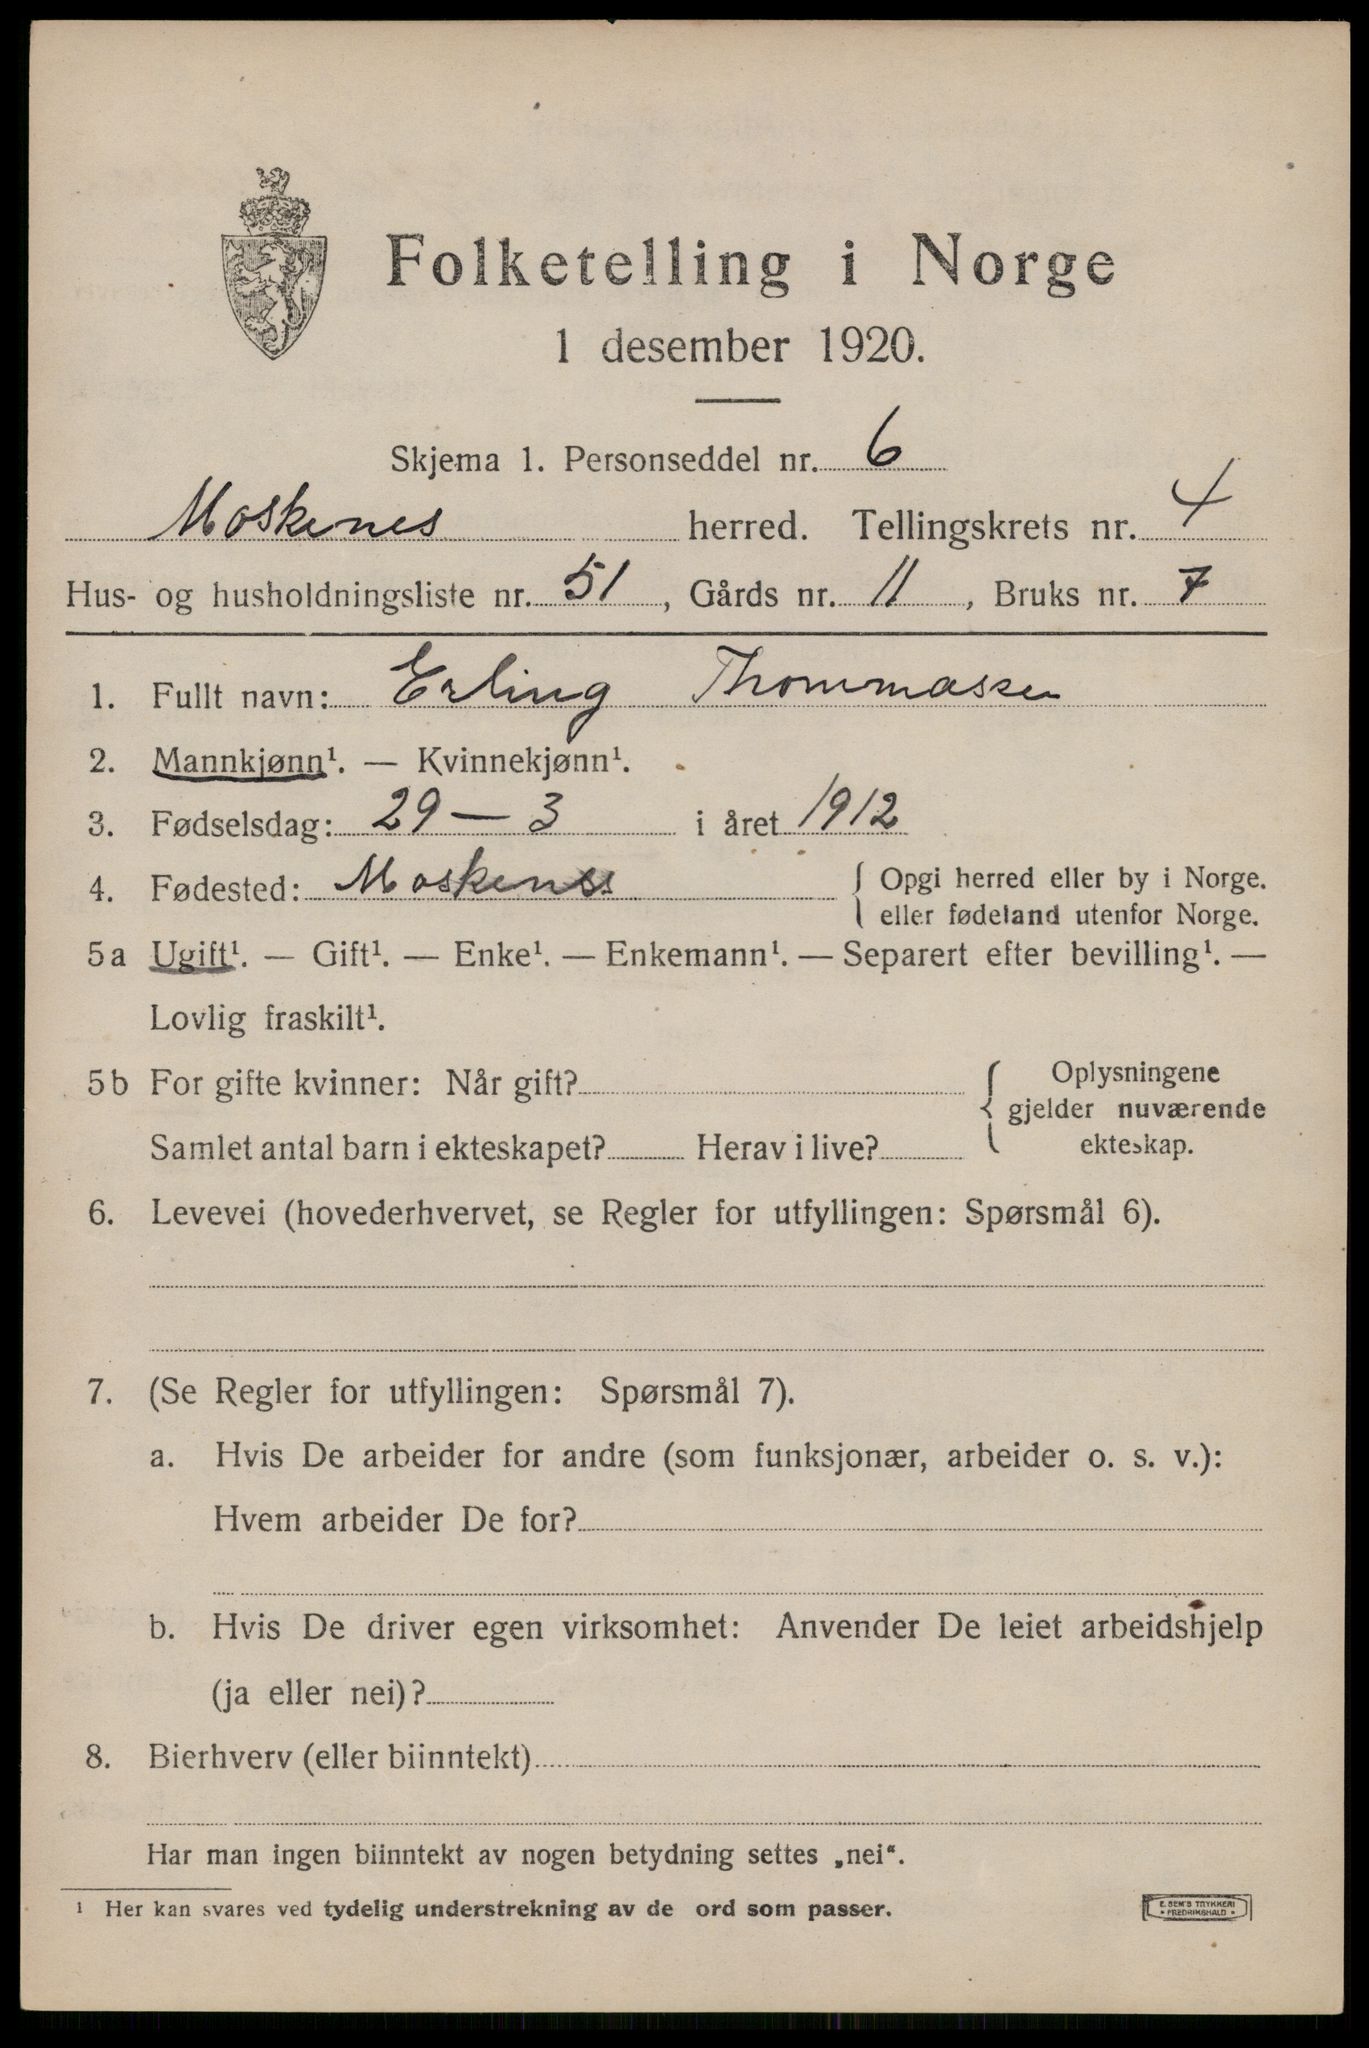 Folketelling i Norge
1 desember 1920.
Skjema 1. Personseddel nr. 6
Moskenes herred. Tellingskrets nr. 4
Hus- og husholdningsliste nr. 51, Gårds nr. 11, Bruks nr. 7
1. Fullt navn: Erling Thommassen
2. Mannkjønn¹. — Kvinnekjønn¹.
3. Fødselsdag: 29 — 3 i året 1912
4. Fødested: Moskenes { Opgi herred eller by i Norge.
eller fødeland utenfor Norge.
5a Ugift¹. — Gift¹. — Enke¹. — Enkemann¹. — Separert efter bevilling¹. —
Lovlig fraskilt¹.
5b For gifte kvinner: Når gift? { Oplysningene
gjelder nuværende
Samlet antal barn i ekteskapet? Herav i live? ekteskap.
6. Levevei (hovederhvervet, se Regler for utfyllingen: Spørsmål 6).
7. (Se Regler for utfyllingen: Spørsmål 7).
a. Hvis De arbeider for andre (som funksjonær, arbeider o. s. v.):
Hvem arbeider De for?
b. Hvis De driver egen virksomhet: Anvender De leiet arbeidshjelp
(ja eller nei)?
8. Bierhverv (eller biinntekt)
Har man ingen biinntekt av nogen betydning settes „nei“.
¹ Her kan svares ved tydelig understrekning av de ord som passer.
E. SEM'S TRYKKERI
• FREDRIKSHALD •